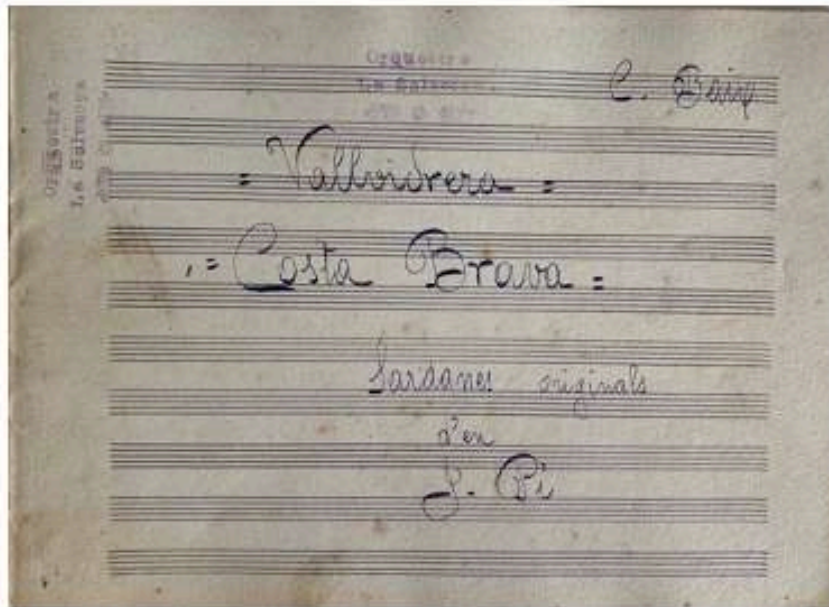 Orquestra
La Salvenya
Orquestra
La
C. Baix
= Vallvidrera =
= Costa Brava =
Sardanes originals
d'en
J. Pi